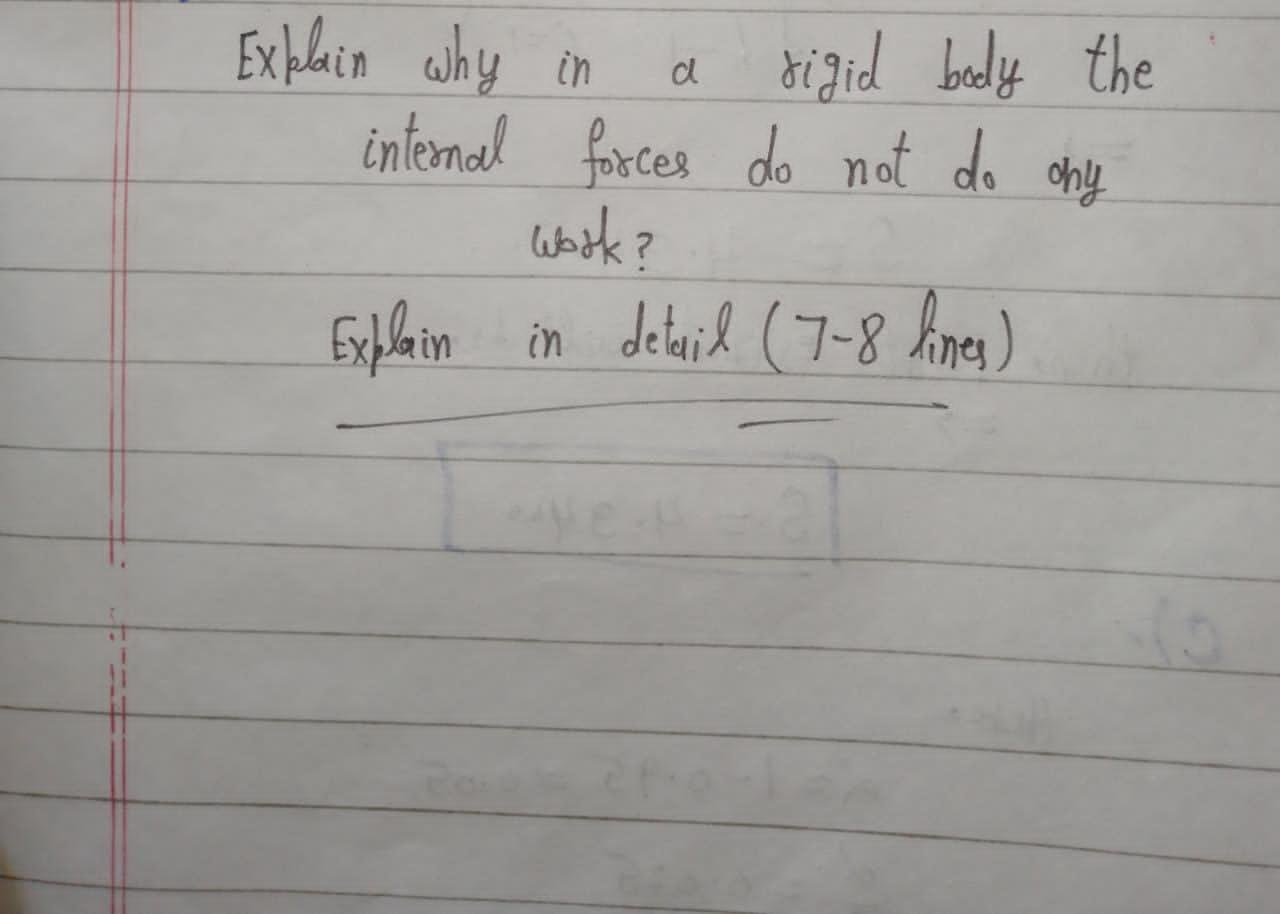 Explain why in a rigid body the
internal forces do not do any
work?
Explain in detail (7-8 lines)
S = 4.34
C).
= 1 - 0.95 = 0.05